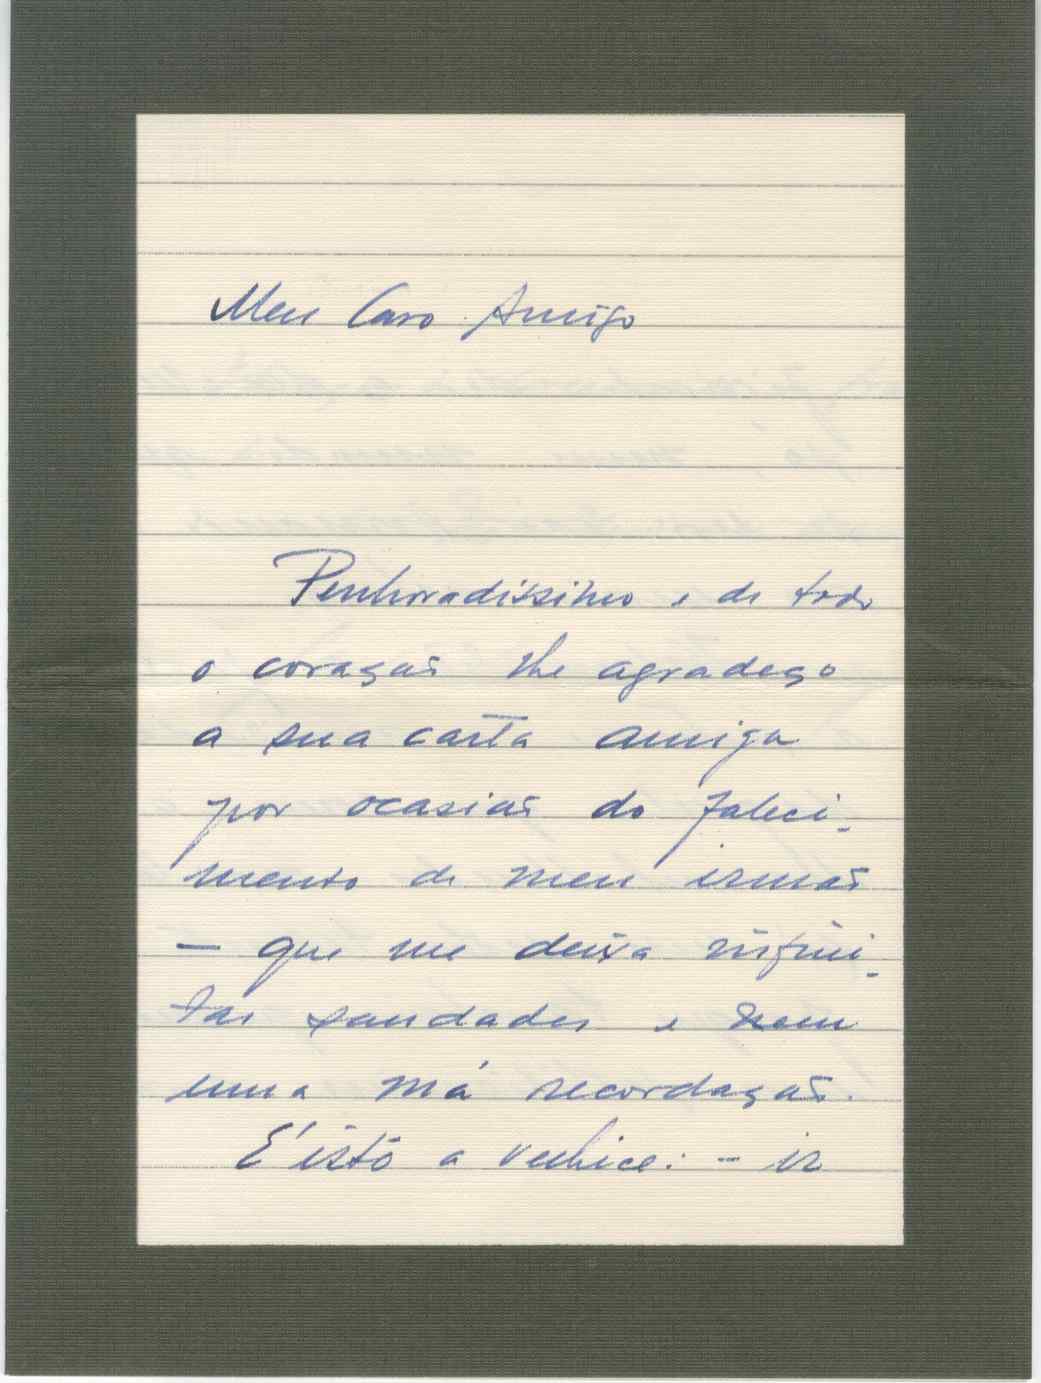 Meu Caro Amigo
Penhoradíssimo e de todo
o coração lhe agradeço
a sua carta amiga
por ocasião do faleci-
mento de meu irmão
— que me deixa infini-
tas saudades e nem
uma má recordação.
É isto a velhice: - ir